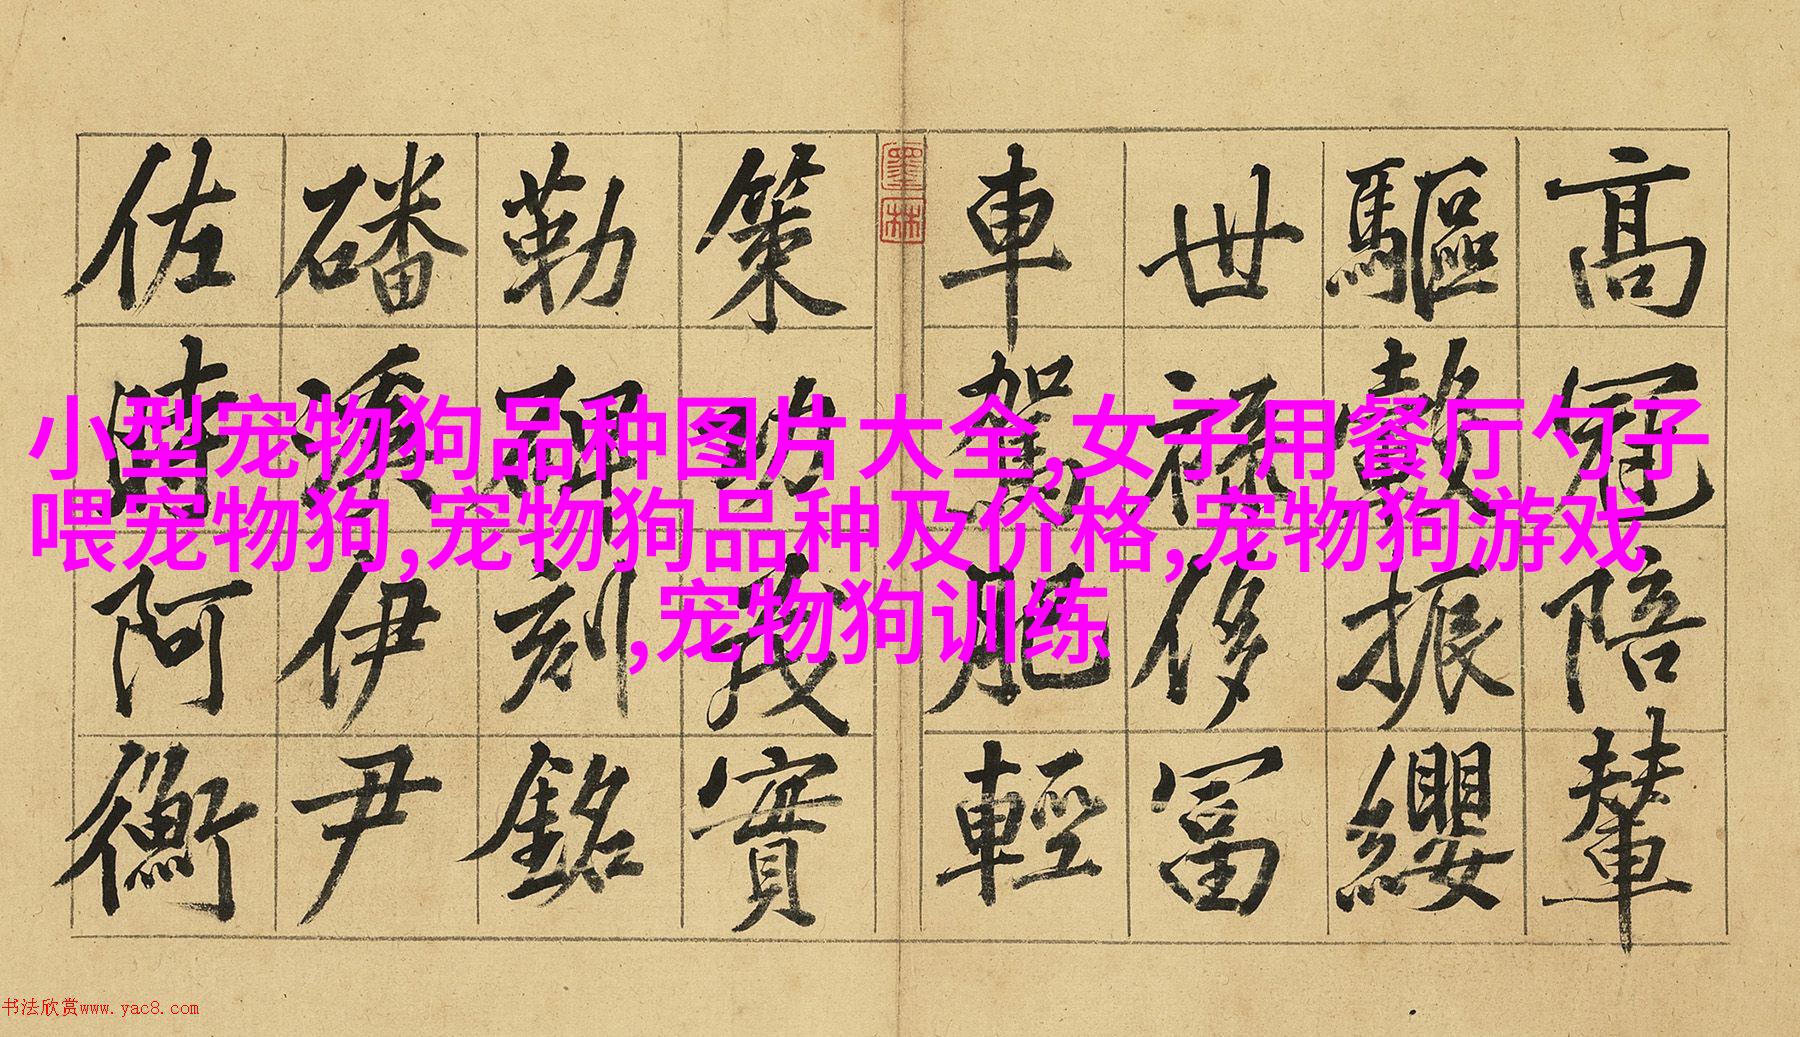 高冠陪輦
驅轂振纓
世祿侈富
車駕肥輕
墨林
策功茂實
勒碑刻銘
磻溪伊尹
佐時阿衡
小型宠物狗品种图片大全,女子用餐厅勺子
喂宠物狗,宠物狗品种及价格,宠物狗游戏
,宠物狗训练
书法欣赏www.yac8.com